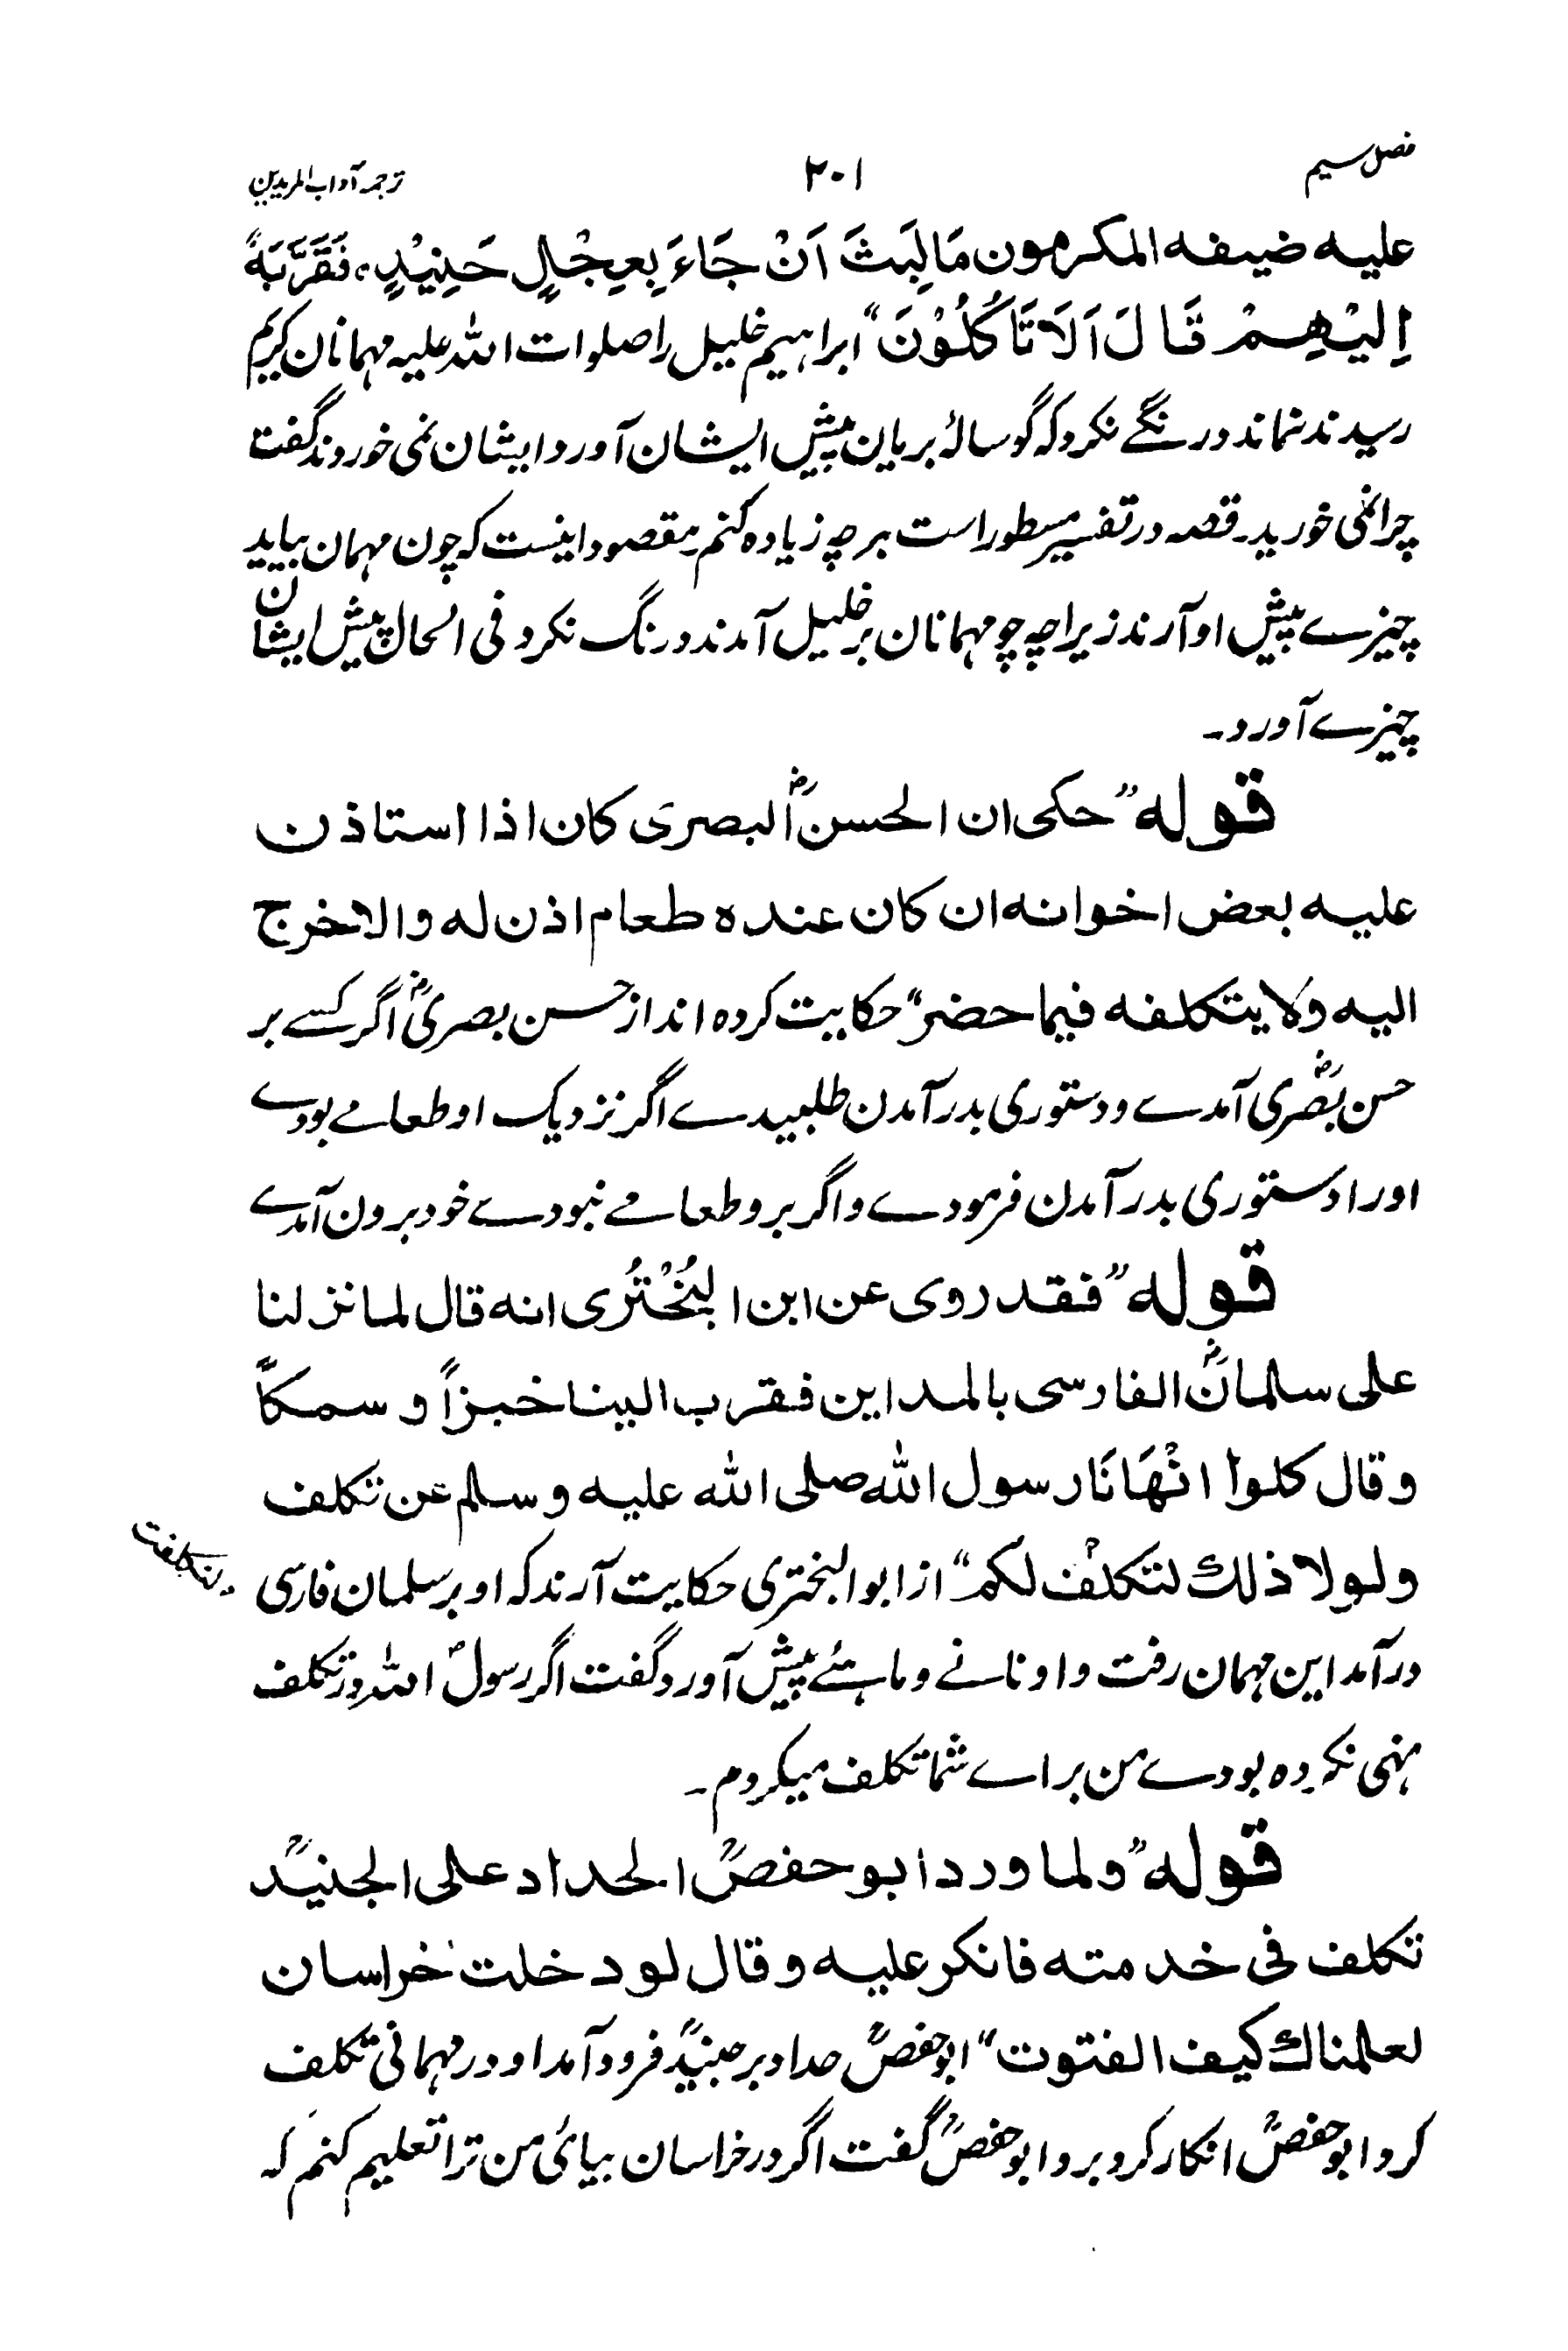 فصل سیم
۲۰۱
ترجمہ آداب المریدین
علیہ ضیفہ المکرمون مَا لَبِثَ اَنْ جَاءَ بِعِجْلٍ حَنِیْذٍ، فَقَرَّبَهٗ
اِلَیْهِمْ قَالَ اَلَا تَاکُلُوْنَ" ابراہیم خلیل را صلوات اللہ علیہ مہمانان کریم
رسیدند نماند درنگے نکرد کہ گوسالۂ بریان پیش ایشان آورد ایشان نمی خوردند گفت
چرا نمی خورید۔ قصہ در تفسیر مسطور است بر چہ زیادہ کنم۔ مقصود اینست کہ چون مہمان بیاید
چیزے پیش او آرند زیرا چہ چو مہمانان بر خلیل آمدند درنگ نکرد فی الحال پیش ایشان
چیزے آورد۔
قولہ "حکی ان الحسنؓ البصری کان اذا استاذن
علیہ بعض اخوانہ ان کان عندہ طعام اذن لہ والا خرج
الیہ ولا یتکلفہ فیما حضر" حکایت کردہ اند از حسن بصریؓ اگر کسے بر
حسن بصریؓ آمدے و دستوری بدر آمدن طلبیدے اگر نزدیک او طعامے بودے
اورا دستوری بدر آمدن فرمودے و اگر برو طعامے نبودے خود برون آمدے
قولہ "فقد روی عن ابن البُخْتُری انہ قال لما نزلنا
علی سلمانؓ الفارسی بالمداین فقرب الینا خبزاً و سمکاً
وقال کلوا انْهَانَا رسول اللہ صلی اللہ علیہ وسلم عن تکلف
ولولا ذلك لتکلف لکم" از ابو البختری حکایت آرند کہ او بر سلمان فارسی
لتکلفت
در آمد این مہمان رفت و او نانے و ماہئے پیش آورد گفت اگر رسولؐ اللہ از تکلف
منہی نکردہ بودے من براے شما تکلف میکردم۔
قولہ "ولما ورد ابو حفصؒ الحداد علی الجنیدؒ
تکلف فی خدمتہ فانکر علیہ وقال لو دخلت خراسان
لعلمناك کیف الفتوت" ابو حفصؒ حداد بر جنیدؒ فرود آمد او در مہمانی تکلف
کرد ابو حفصؒ انکار کرد برو ابو حفصؒ گفت اگر در خراسان بیائی من ترا تعلیم کنم کہ